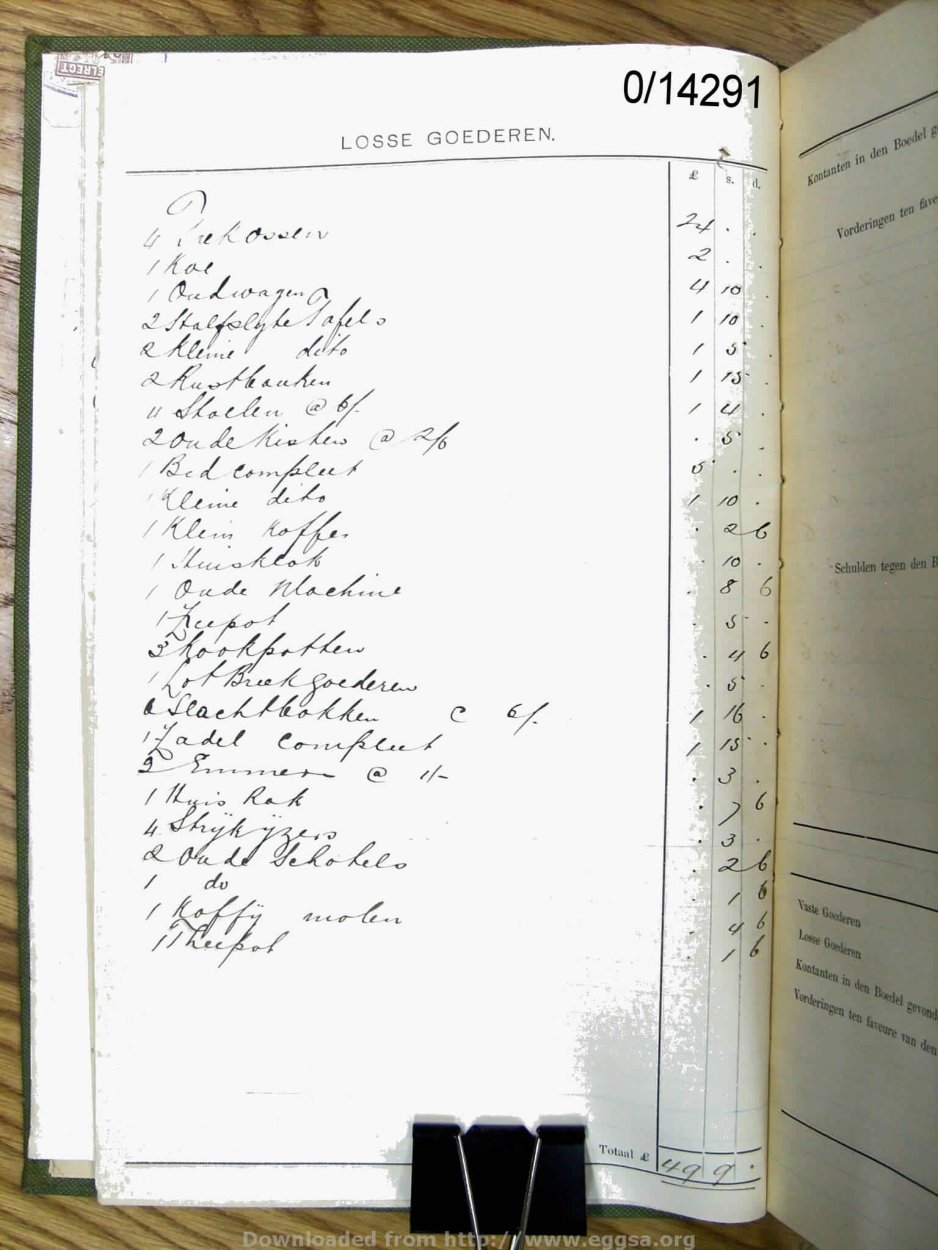 ELREGT
0/14291
LOSSE GOEDEREN.
£ s. d.
4 Trekossen 24 . .
1 Koe 2 . .
1 Oudwagen 4 10 .
2 Halfslyte Tafels 1 10 .
2 Kleine dito 1 5 .
2 Rustbanken 1 15 .
4 Stoelen @ 6/- 1 4 .
2 oude Kisten @ 2/6 . 5 .
1 Bed compleet 5 . .
1 Kleine dito 1 10 .
1 Klein Koffer . 2 6
1 Huisklok . 10 .
1 Oude Machine . 8 6
1 . 5 .
3 Kookpotten . 4 6
1 Lot Breekgoederen . 5 .
6 Slachtbokken @ 6/- 1 16 .
1 Zadel compleet 1 15 .
3 Emmers @ 1/- . 3 .
1 Huis Rak . 7 6
4 Strykyzers . 3 .
2 Oude Schotels . 2 6
1 do . 1 6
1 Koffij molen . 4 6
1 Theepot . 1 6
Totaal £ 49 9 .
Kontanten in den Boedel g
Vorderingen ten fave
Schulden tegen den B
Vaste Goederen
Losse Goederen
Kontanten in den Boedel gevond
Vorderingen ten faveure van den
Downloaded from http://www.eggsa.org